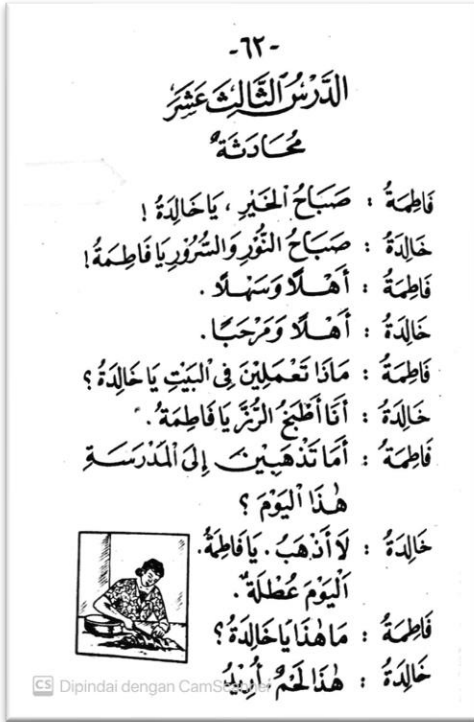 -٦٢-
الدَّرْسُ الثَّالِثَ عَشَرَ
مُحَادَثَةٌ
فَاطِمَةُ : صَبَاحُ الْخَيْرِ ، يَا خَالِدَةُ !
خَالِدَةُ : صَبَاحُ النُّوْرِ وَالسُّرُوْرِ يَا فَاطِمَةُ !
فَاطِمَةُ : أَهْلًا وَسَهْلًا .
خَالِدَةُ : أَهْلًا وَمَرْحَبًا .
فَاطِمَةُ : مَاذَا تَعْمَلِيْنَ فِى الْبَيْتِ يَا خَالِدَةُ ؟
خَالِدَةُ : أَنَا أَطْبَخُ الرُّزَّ يَا فَاطِمَةُ .
فَاطِمَةُ : أَمَا تَذْهَبِيْنَ إِلَى الْمَدْرَسَةِ
هٰذَا الْيَوْمَ ؟
خَالِدَةُ : لَا أَذْهَبُ . يَا فَاطِمَةُ .
اَلْيَوْمَ عُطْلَةٌ .
فَاطِمَةُ : مَا هٰذَا يَا خَالِدَةُ ؟
خَالِدَةُ : هٰذَا لَحْمٌ أُرِيْدُ
CS Dipindai dengan CamScanner